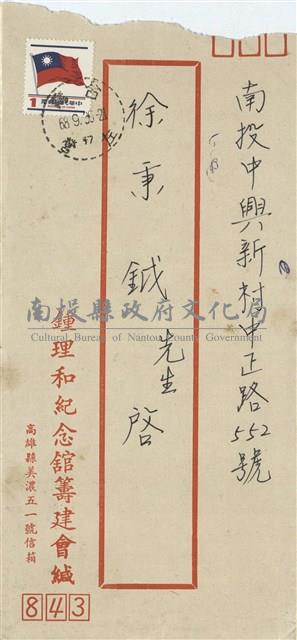 南投中興新村中正路552號
徐秉鉞先生啓
鍾理和紀念舘籌建會緘
高雄縣美濃五一號信箱
843
南投縣政府文化局
Cultural Bureau of Nantou County Government
1
68.9.